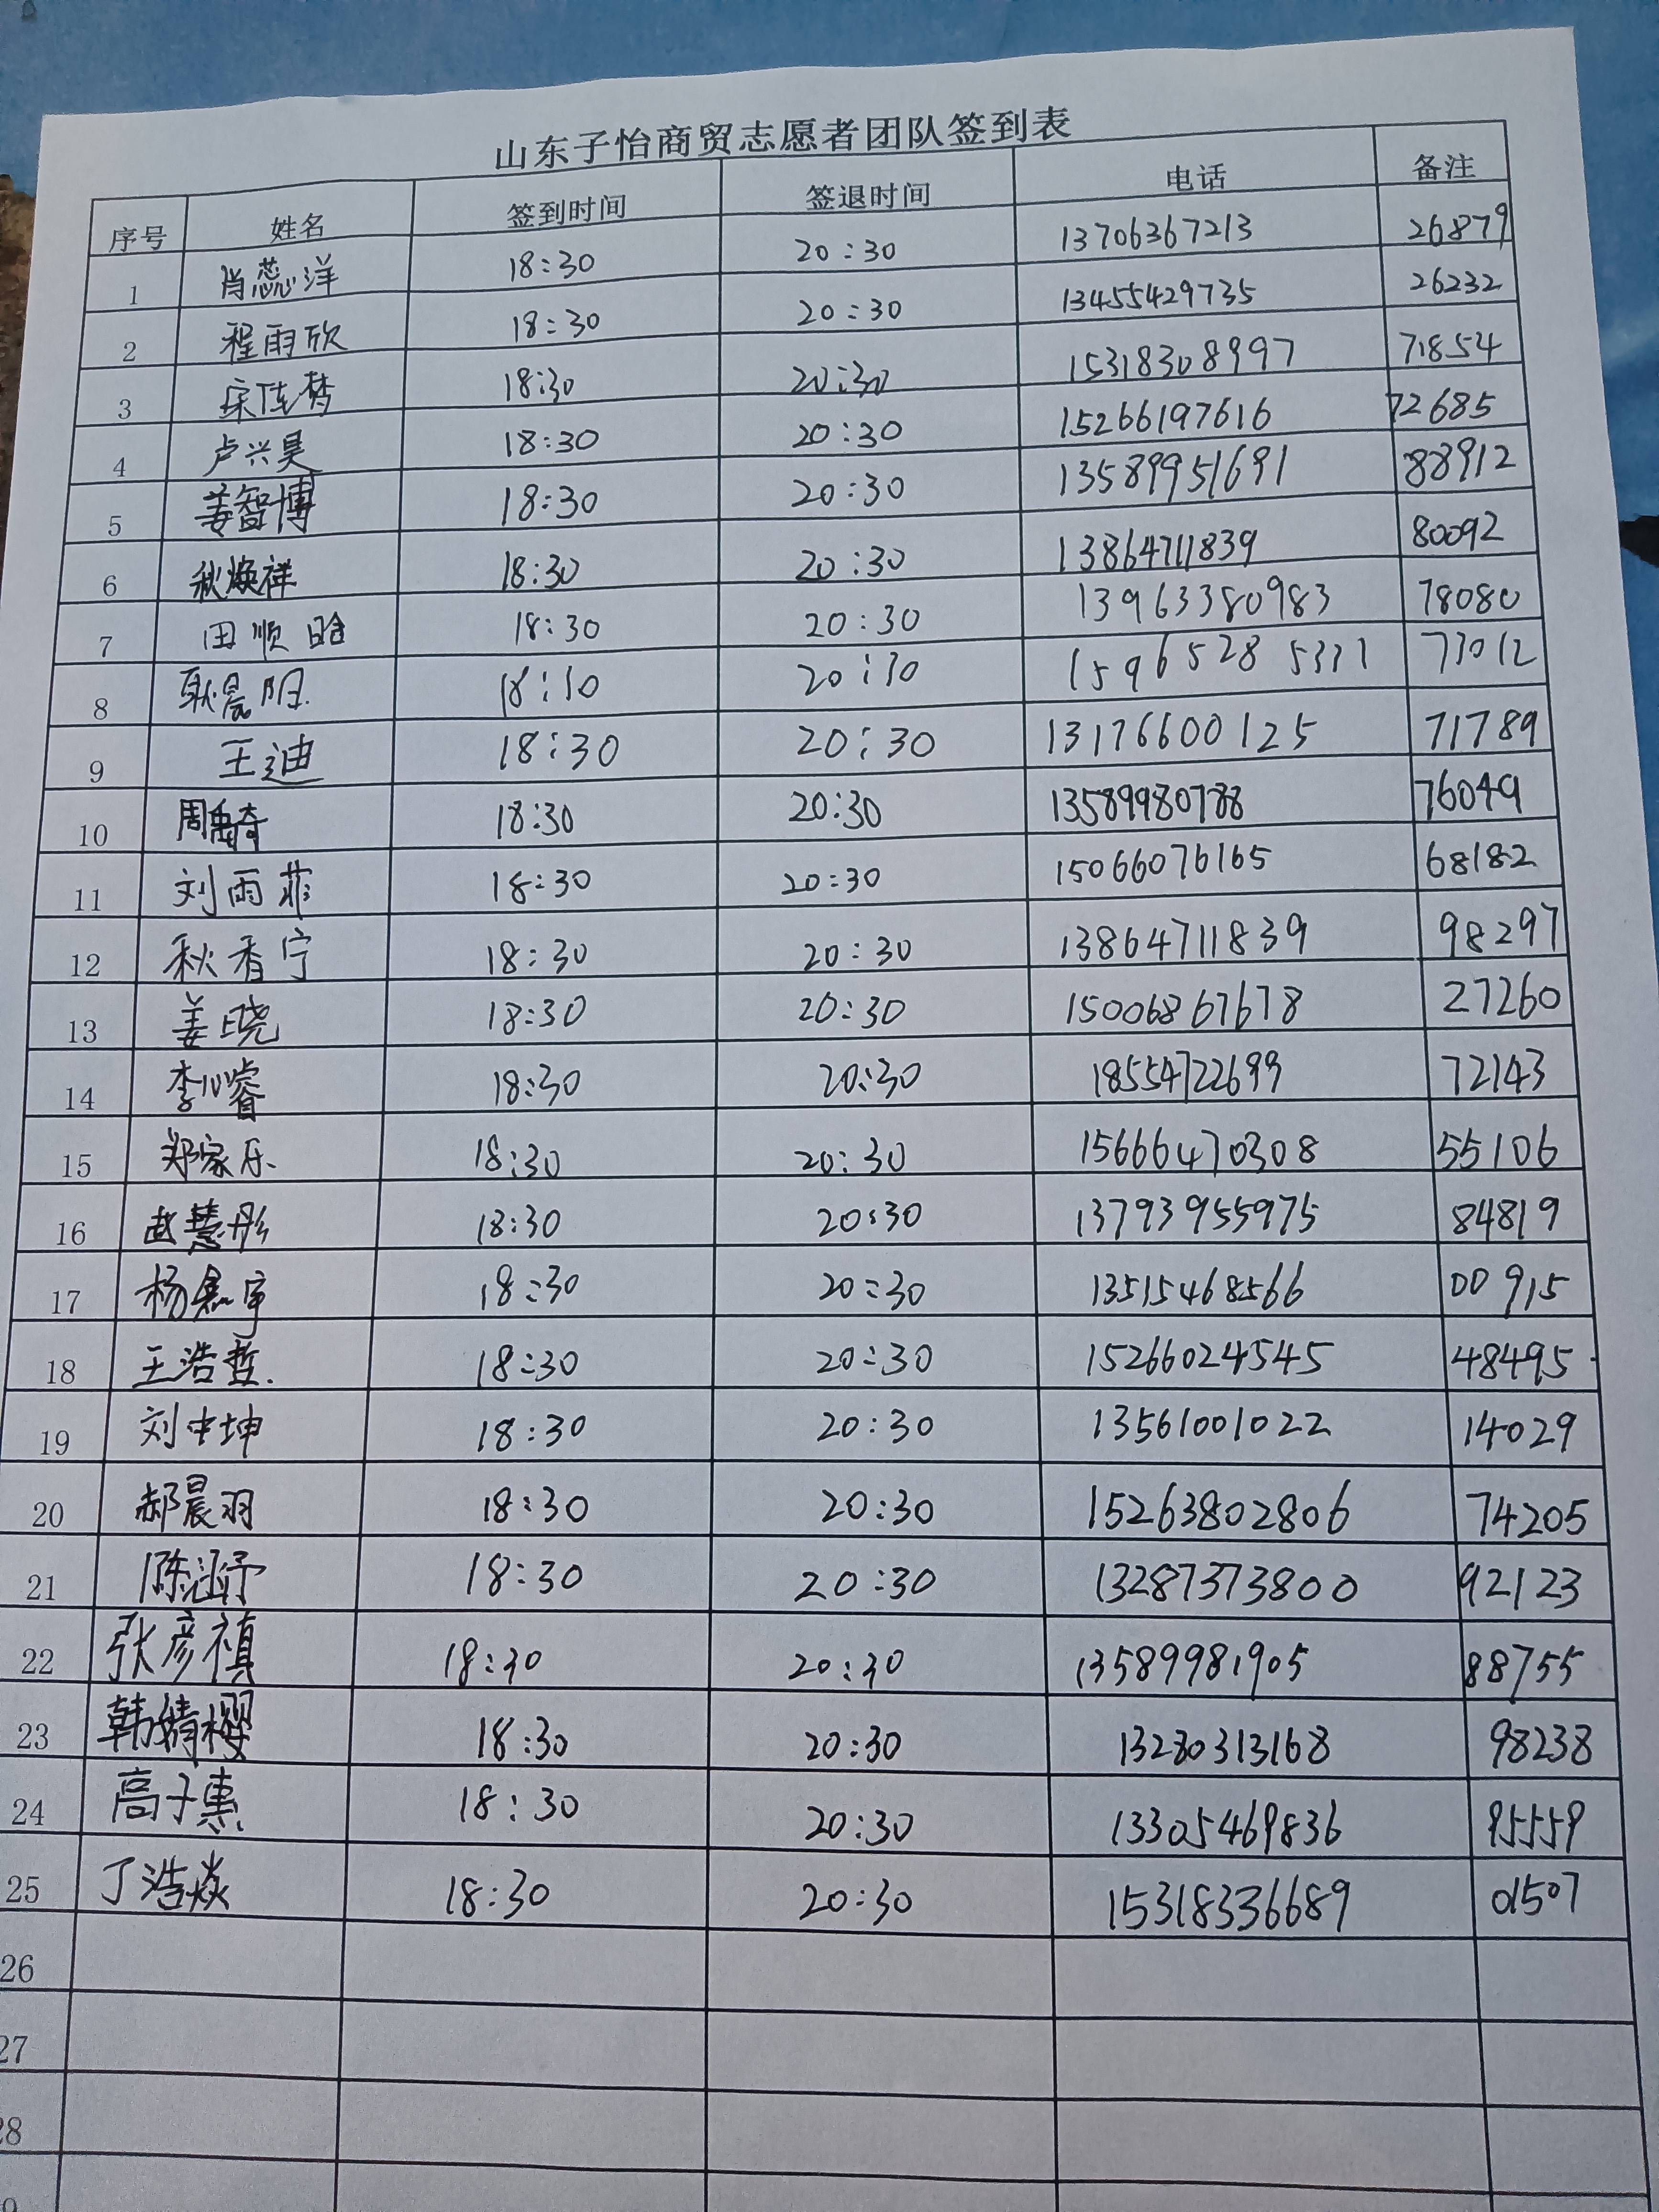 山东子怡商贸志愿者团队签到表
序号 姓名 签到时间 签退时间 电话 备注
1 肖蕊洋 18:30 20:30 13706367213 26879
2 程雨欣 18:30 20:30 13455429735 26232
3 宋佳梦 18:30 20:30 15318308997 71854
4 卢兴昊 18:30 20:30 15266197616 72685
5 姜智博 18:30 20:30 13589951691 88912
6 秋焕祥 18:30 20:30 13864711839 80092
7 田顺晗 18:30 20:30 13963380983 78080
8 耿晨阳 18:30 20:30 15965285331 73012
9 王迪 18:30 20:30 13176600125 71789
10 周禹奇 18:30 20:30 13589980788 76049
11 刘雨菲 18:30 20:30 15066076165 68182
12 秋香宁 18:30 20:30 13864711839 98297
13 姜晓 18:30 20:30 15006867678 27260
14 李心睿 18:30 20:30 18554722699 72143
15 郑家乐 18:30 20:30 15666470308 55106
16 赵慧彤 18:30 20:30 13793955975 84819
17 杨 宇 18:30 20:30 13515468566 00915
18 王浩哲 18:30 20:30 15266024545 48495
19 刘中坤 18:30 20:30 13561001022 14029
20 郝晨羽 18:30 20:30 15263802806 74205
21 陈涵予 18:30 20:30 13287373800 92123
22 张彦禛 18:30 20:30 13589981905 88755
23 韩婧樱 18:30 20:30 13280313168 98238
24 高子惠 18:30 20:30 13305469836 95559
25 丁浩焱 18:30 20:30 15318336689 01507
26
27
28